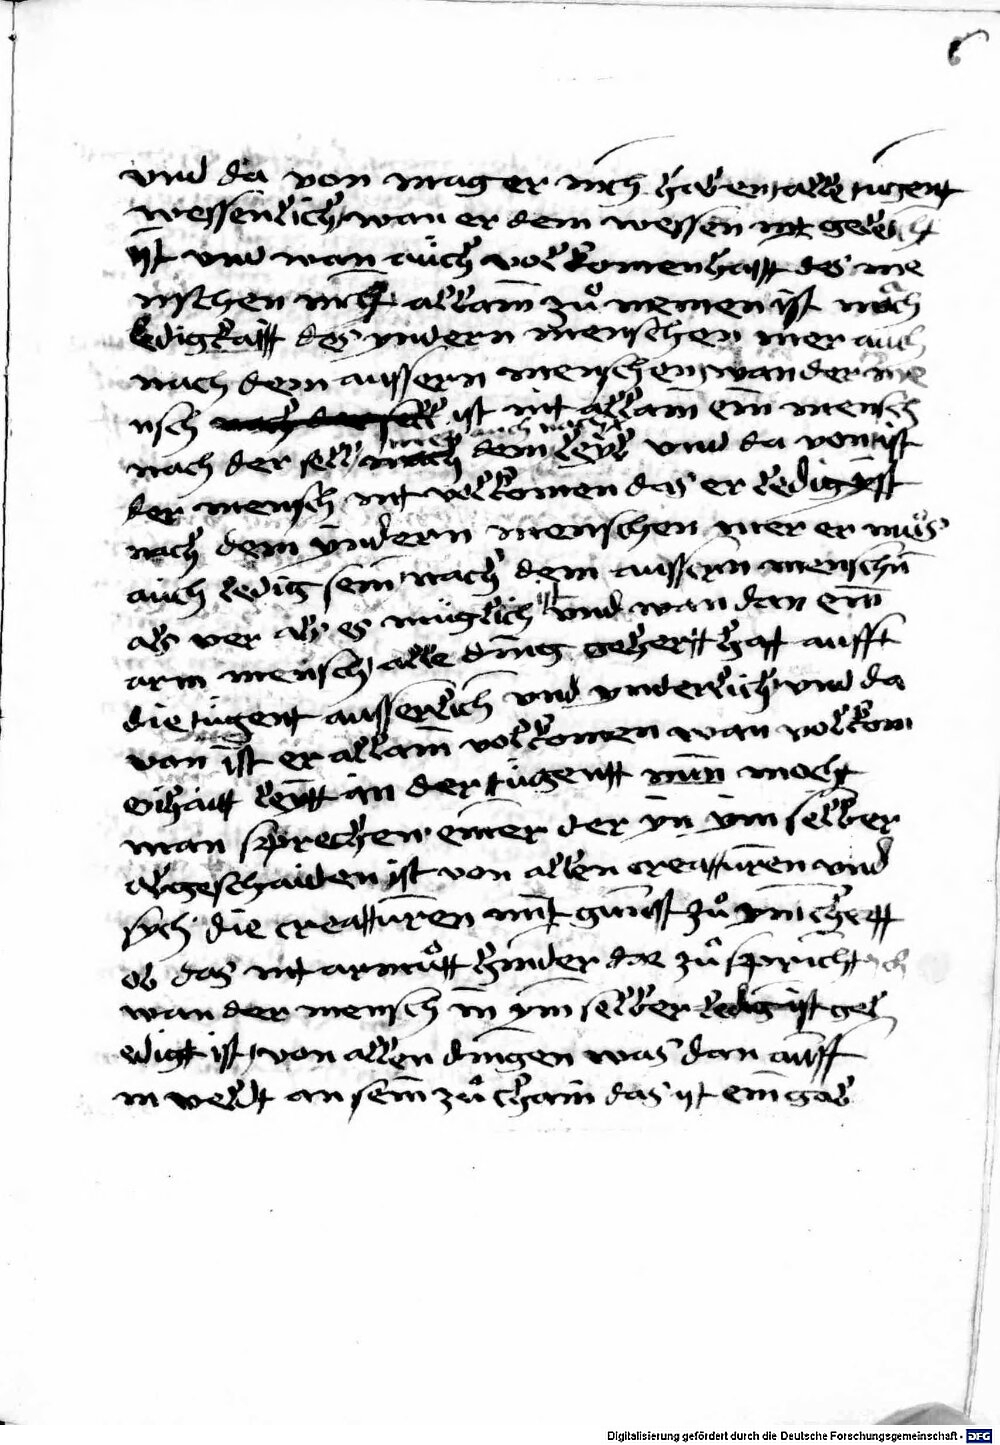 6
vnd da von mag er nich haben alle tugent
wessenlich wan er dem wessen nit geleicht
ist vnd wan auch volkomenhaitt des me
nschen nich allain zů nemen ist nach
ledigkaitt des yndern menschen mer auch
nach dem aussern menschen wan der me
nsch ist nit allain ein mensch
nach der sell auch nach dem leyb vnd da von ist
der mensch nit volkomen das er ledig yst
nach dem yndern menschen mer er můs
auch ledig sein nach dem aussern menschn
als ver als es müglich ist vnd wan dan ein
arm mensch alle ding gekertt hatt auff
die tugent ausserlich vnd ynderlich vnd da
von ist er allain volkomen wan volkom
enhaitt leytt an der tügentt nun mocht
man sprechen einer der yn ym selber
abgeschaiden ist von allen creatturen vnd
sych die creatturen mit gunst zů ym chertt
ob das nit armůtt hinder dae zů sprich ich
wan der mensch in ym selber ledig ist gel
edigt ist von allen dingen was dan auff
in veldt an sein zů chain das ist ein gab
Digitalisierung gefördert durch die Deutsche Forschungsgemeinschaft - DFG